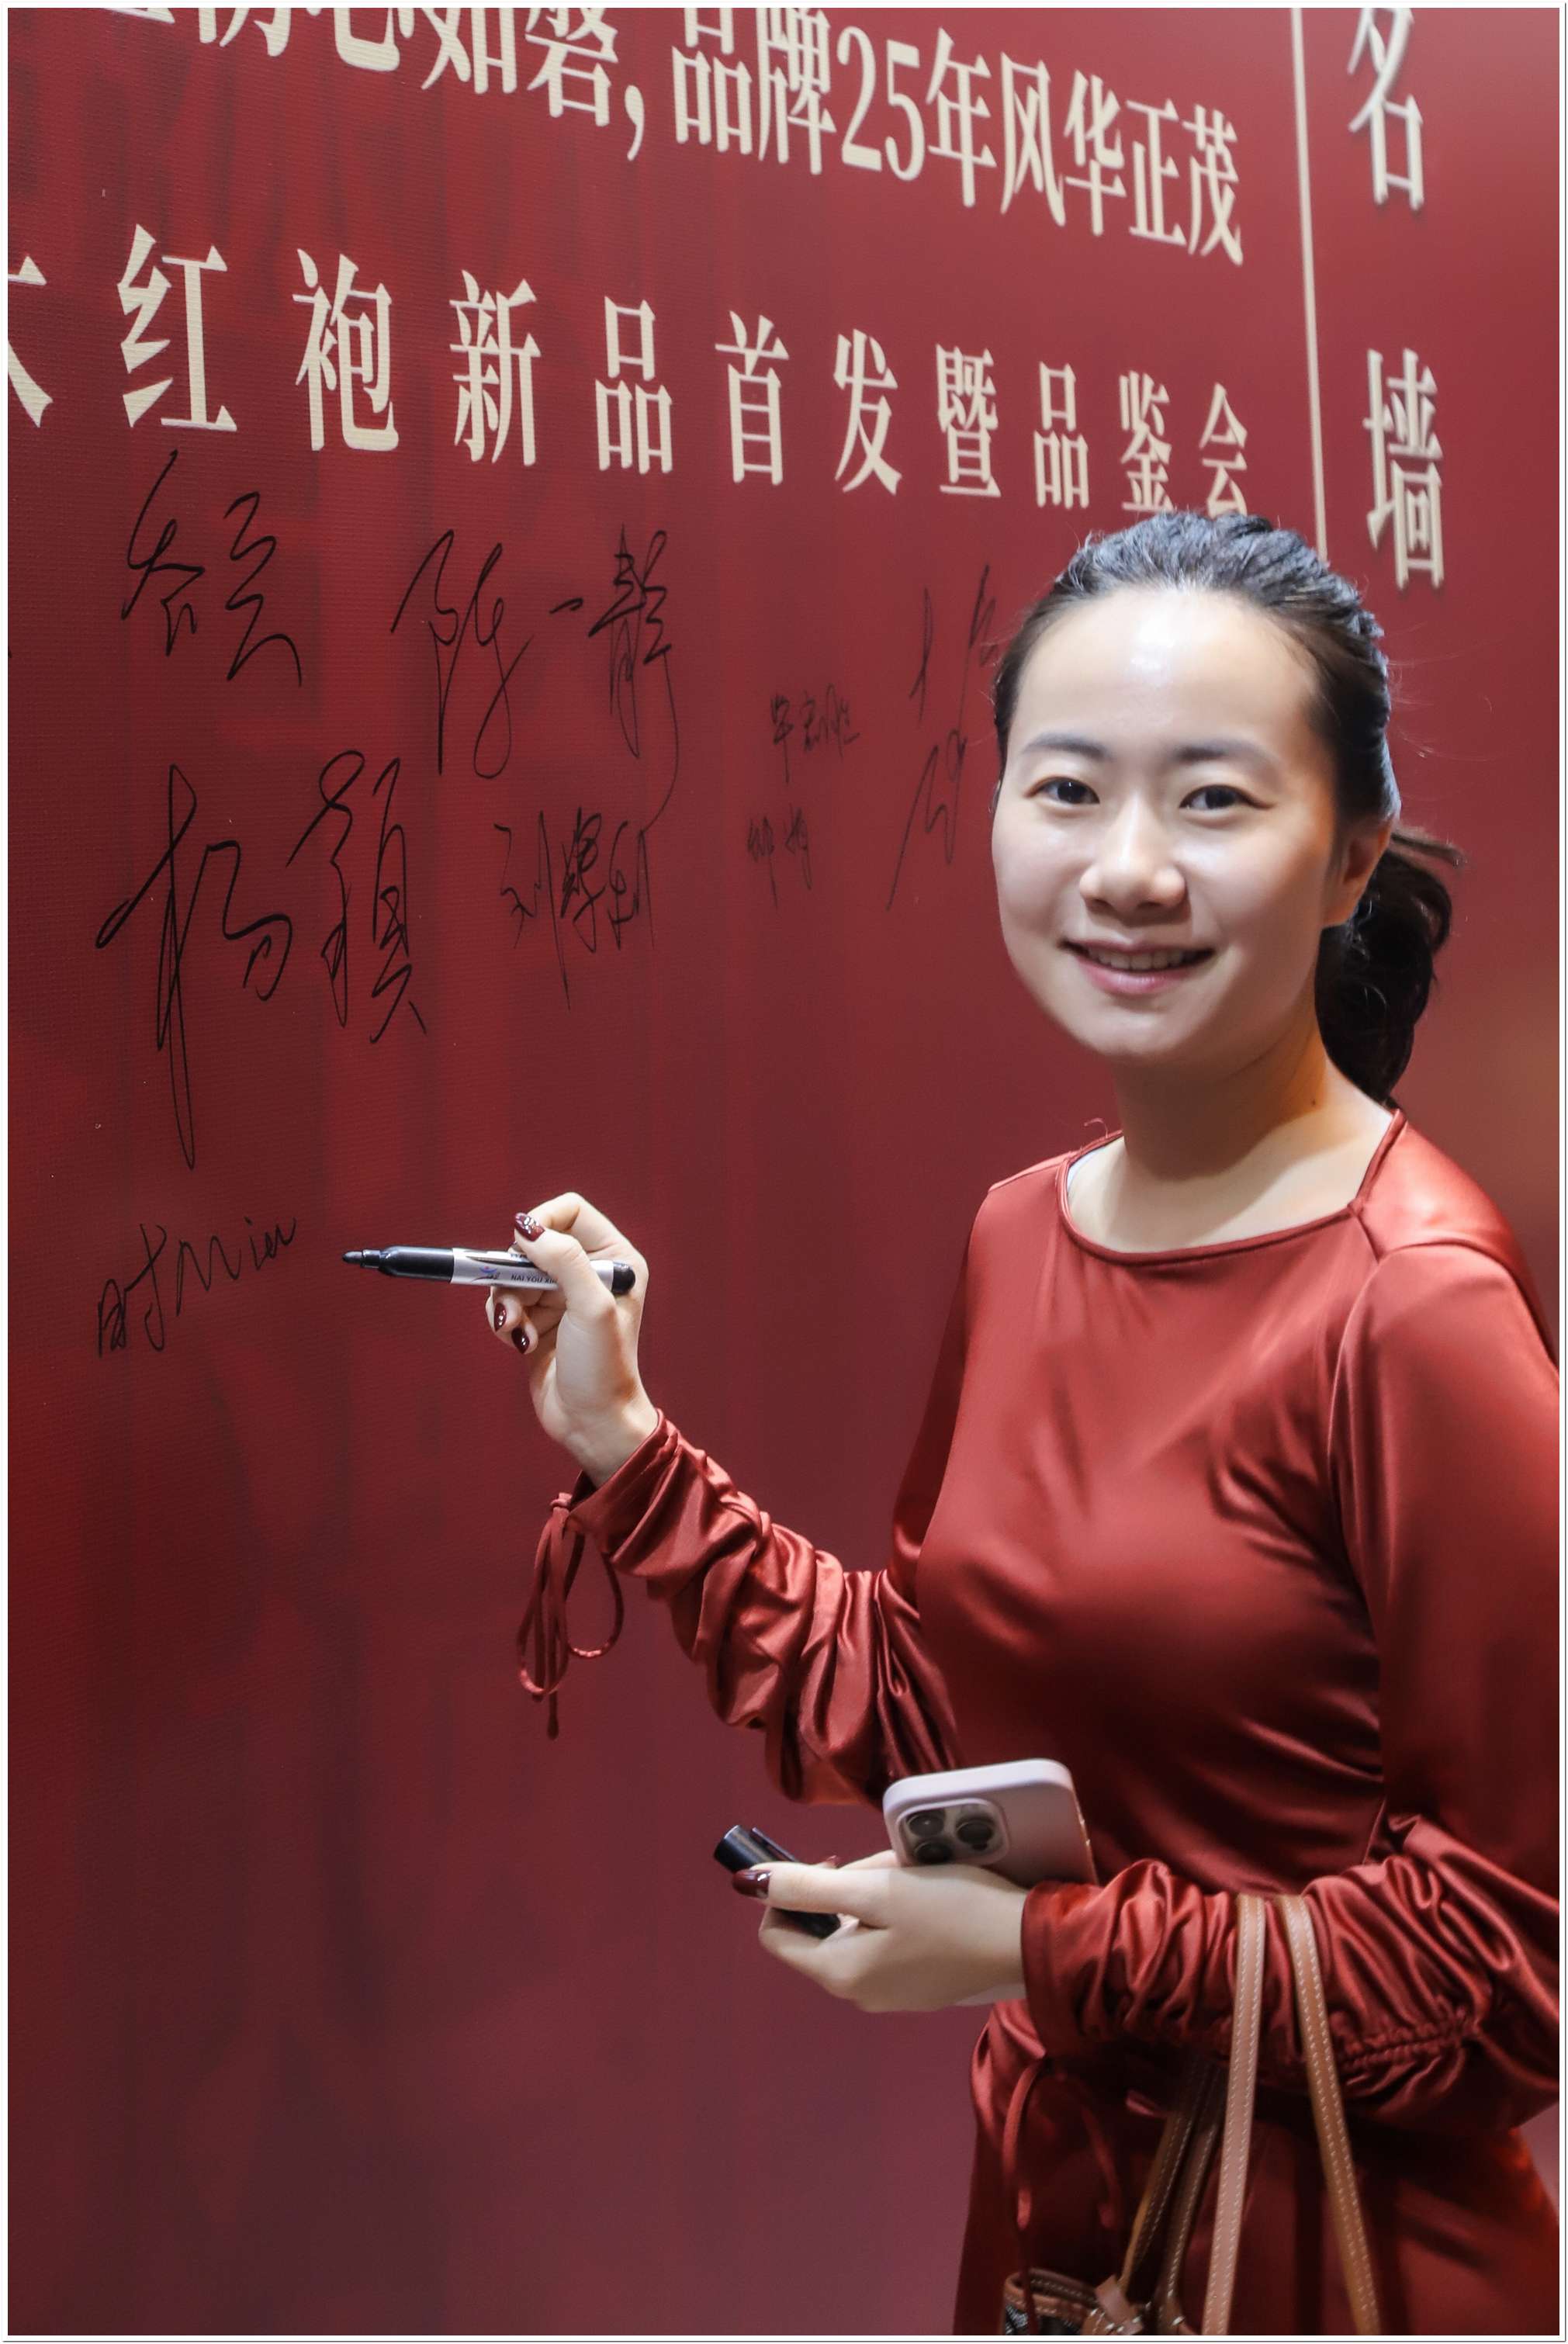 初心如磐,品牌25年风华正茂
大红袍新品首发暨品鉴会
名墙
陈一静
杨颖
刘耀
时Mier
NAI YOU XI